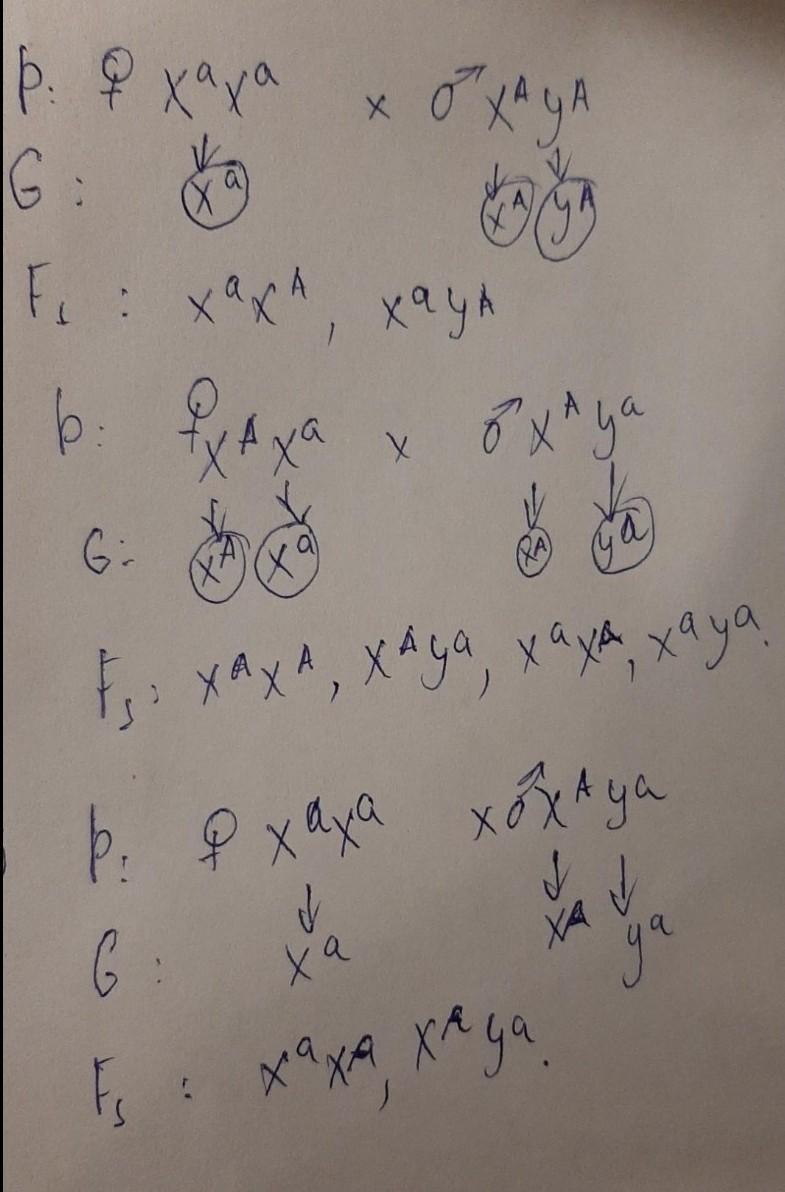 P: ♀ XᵃXᵃ × ♂ Xᴬyᴬ
G: Xᵃ Xᴬ yᴬ
F₁: XᵃXᴬ, Xᵃyᴬ
P: ♀ XᴬXᵃ × ♂ Xᴬyᵃ
G: Xᴬ Xᵃ Xᴬ yᵃ
F₁: XᴬXᴬ, Xᴬyᵃ, XᵃXᴬ, Xᵃyᵃ.
P: ♀ XᵃXᵃ × ♂ Xᴬyᵃ
G: Xᵃ Xᴬ yᵃ
F₁: XᵃXᴬ, Xᴬyᵃ.